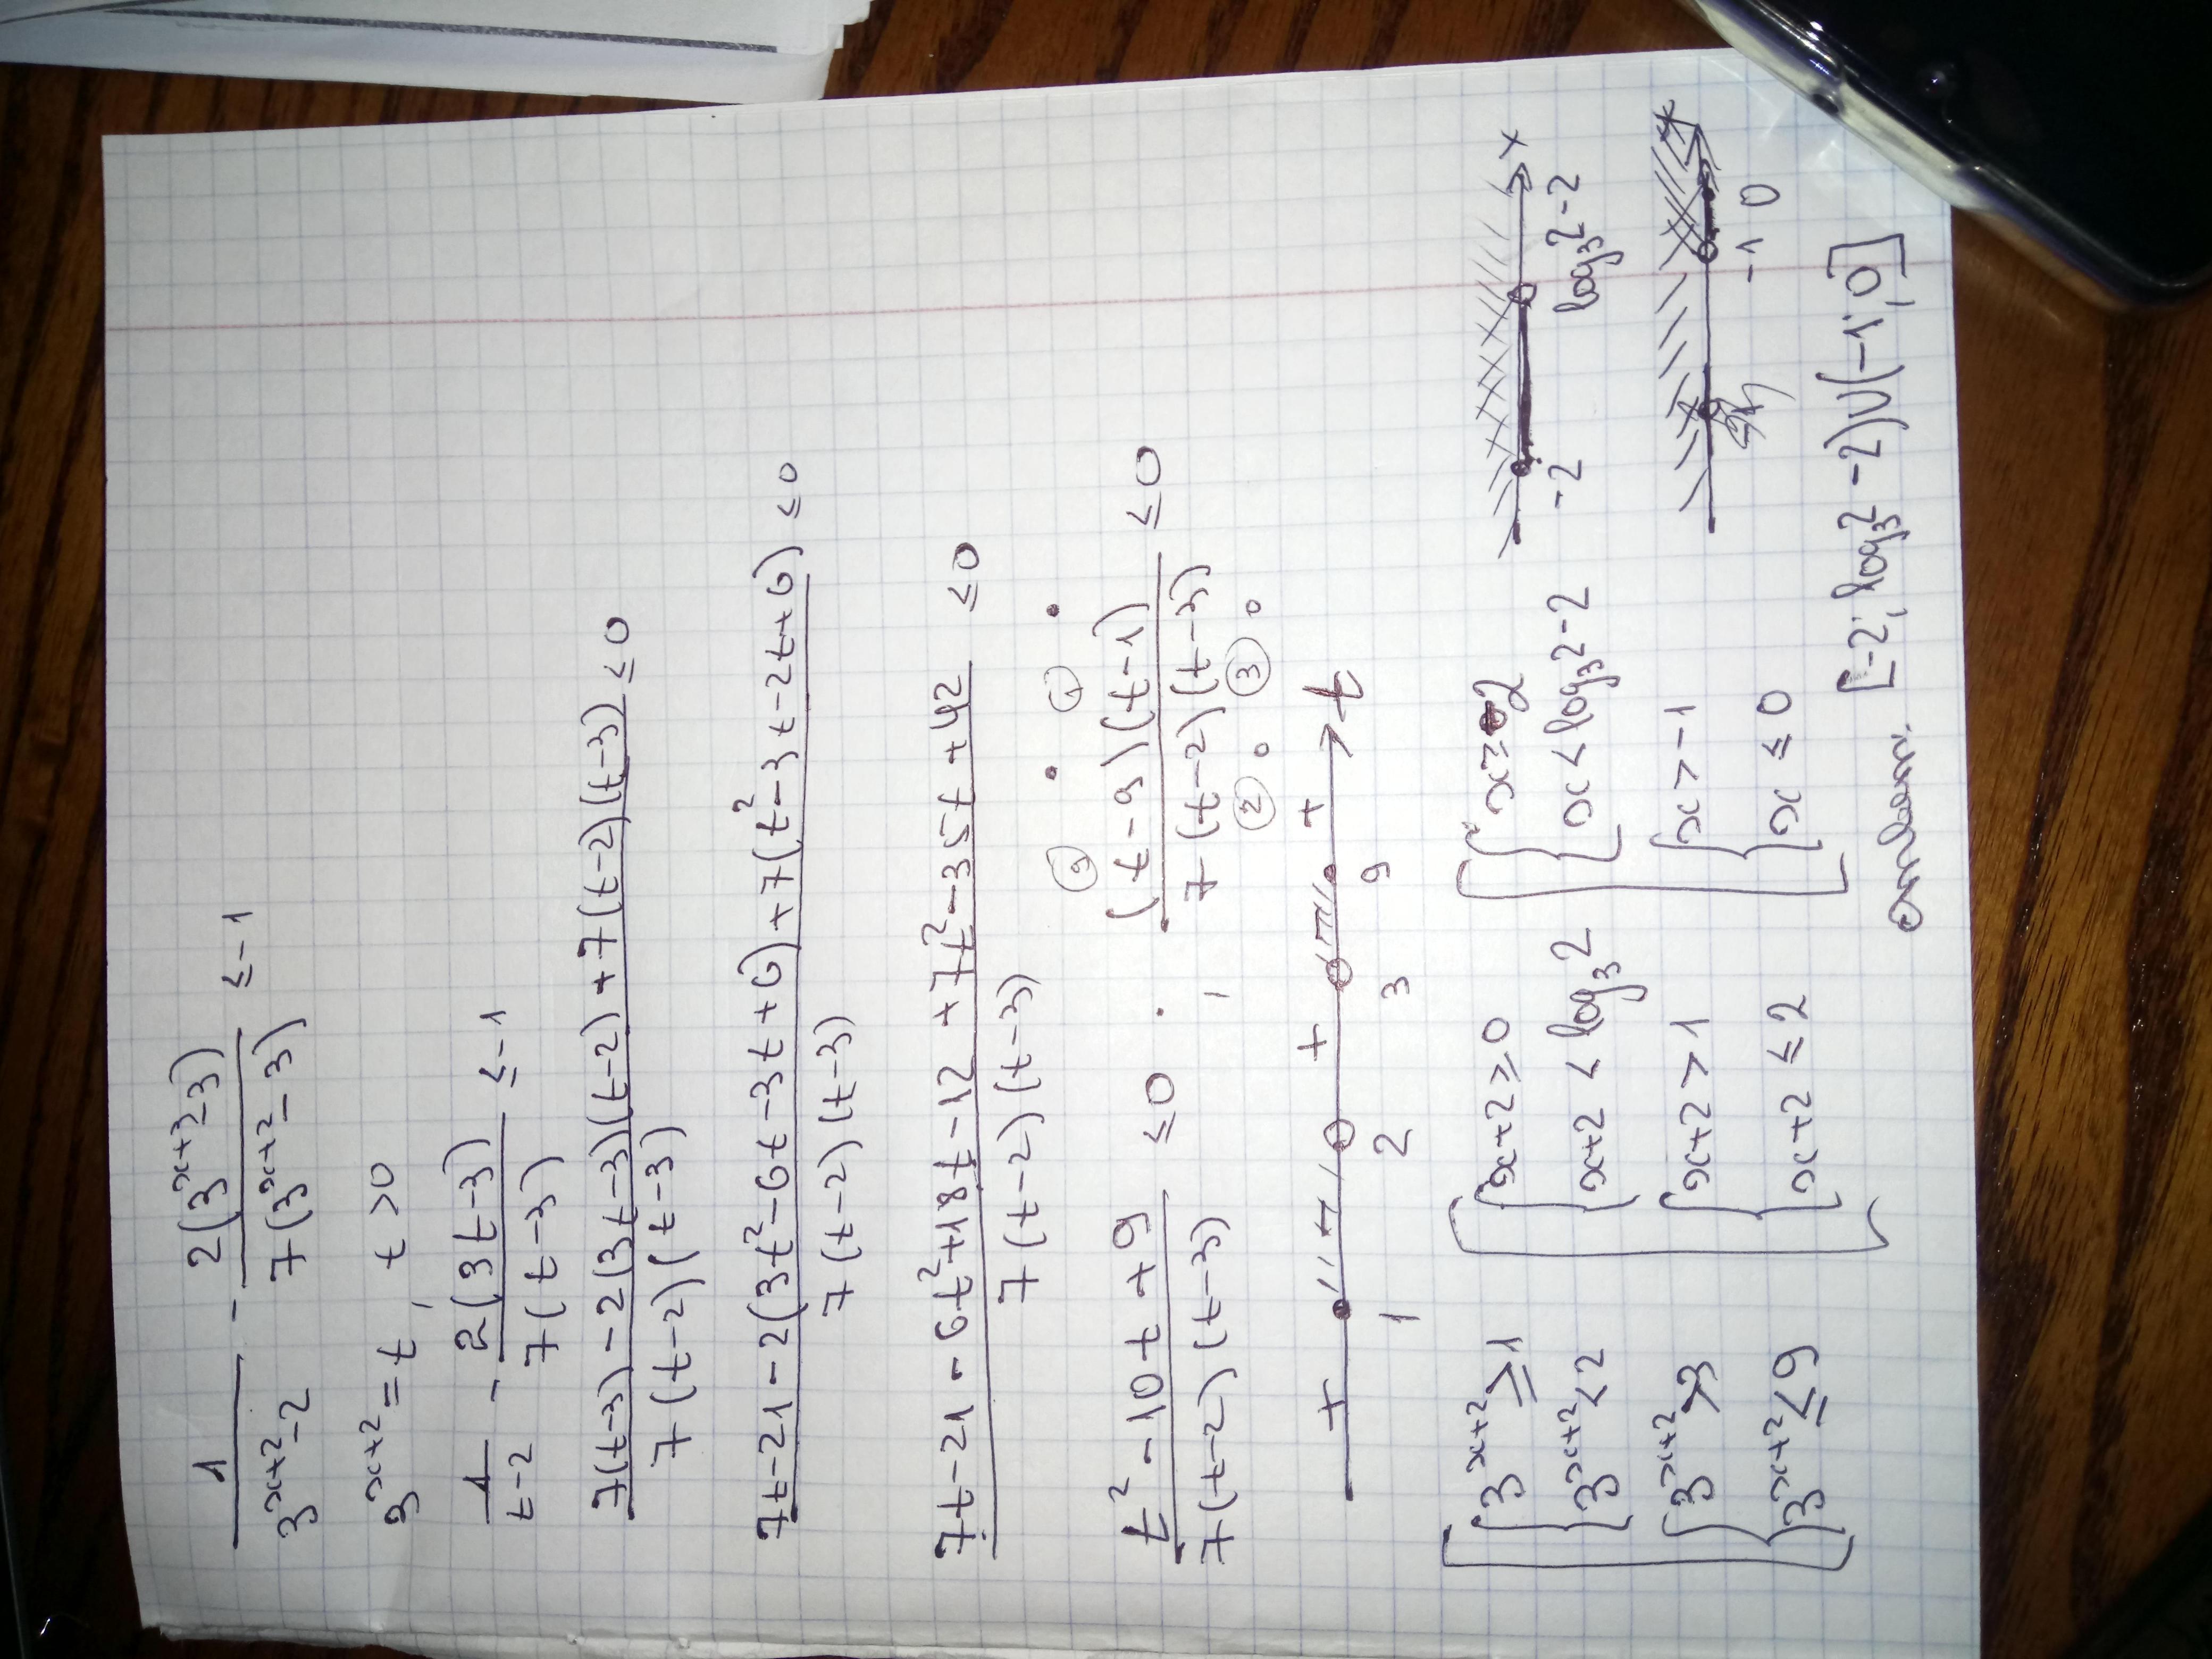 1/(3^(x+2) - 2) - 2(3^(x+3) - 3)/(7(3^(x+2) - 3)) ≤ -1
3^(x+2) = t, t > 0
1/(t-2) - 2(3t-3)/(7(t-3)) ≤ -1
(7(t-3) - 2(3t-3)(t-2) + 7(t-2)(t-3))/(7(t-2)(t-3)) ≤ 0
(7t - 21 - 2(3t² - 6t - 3t + 6) + 7(t² - 3t - 2t + 6))/(7(t-2)(t-3)) ≤ 0
(7t - 21 - 6t² + 18t - 12 + 7t² - 35t + 42)/(7(t-2)(t-3)) ≤ 0
(t² - 10t + 9)/(7(t-2)(t-3)) ≤ 0 . ((t-9)(t-1))/(7(t-2)(t-3)) ≤ 0
⑨ ① ② ③
+ + + t
1 2 3 9
3^(x+2) ≥ 1 x+2 ≥ 0 x ≥ -2 x
3^(x+2) < 2 x+2 < log₃2 x < log₃2 - 2 -2 log₃2 - 2
3^(x+2) > 3 x+2 > 1 x > -1 x
3^(x+2) ≤ 9 x+2 ≤ 2 x ≤ 0 -1 0
ответ: [-2; log₃2 - 2)∪(-1; 0]